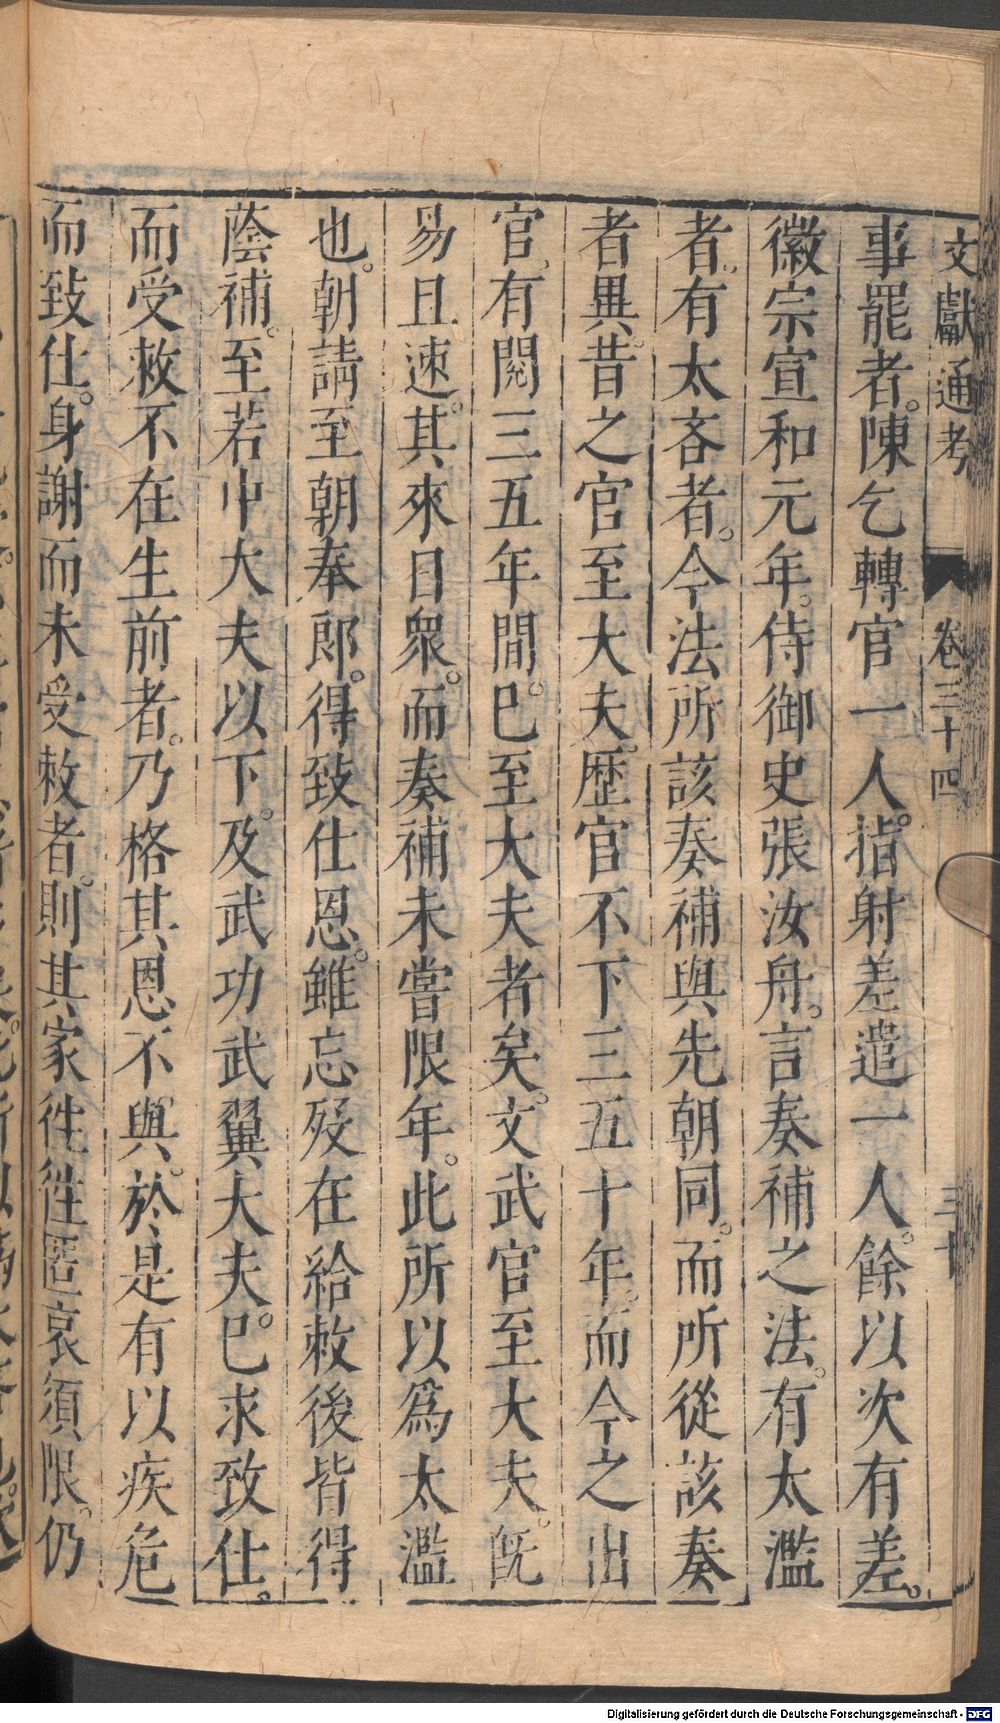 文獻通考 卷三十四 三十
事罷者。陳乞轉官一人。指射差遣一人。餘以次有差。
徽宗宣和元年。侍御史張汝舟。言奏補之法。有太濫
者。有太吝者。今法所該奏補與先朝同。而所從該奏
者異。昔之官至大夫。歷官不下三五十年。而今之出
官。有閱三五年間。已至大夫者矣。文武官至大夫。旣
易且速。其來日衆。而奏補未嘗限年。此所以爲太濫
也。朝請至朝奉郎。得致仕恩。雖忘歿在給敕後皆得
蔭補。至若中大夫以下。及武功武翼大夫。已求致仕。
而受敕不在生前者。乃格其恩不與。於是有以疾危
而致仕。身謝而未受敕者。則其家徃徃匿哀須限。仍
Digitalisierung gefördert durch die Deutsche Forschungsgemeinschaft - DFG